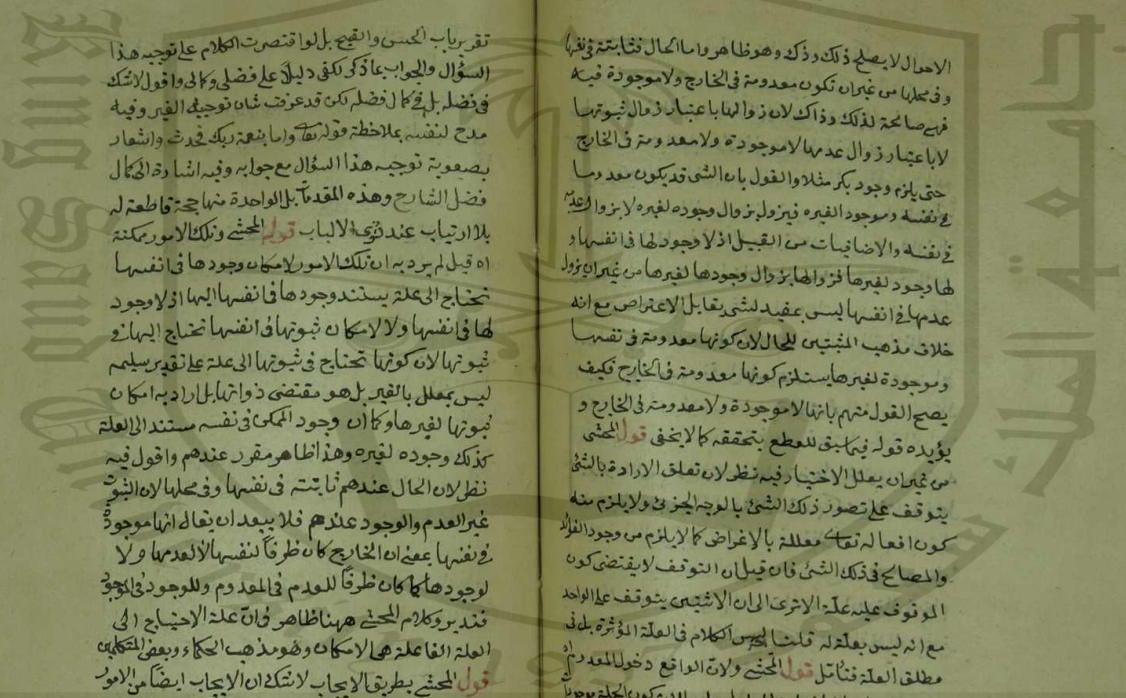 الاحوال لا يصلح ذلك وذك وهو ظاهر واما الحال فثابتة في نفسها
وفي محلها من غير ان تكون معدومة في الخارج ولا موجودة فيه
فهي صالحة لذلك وذاك لان زوالها باعتبار زوال ثبوتها
لا باعتبار زوال عدمها لا موجودة ولا معدومة في الخارج
حتى يلزم وجود بكر مثلا والقول بان الشئ قد يكون معدوما
في نفسه وموجود الغيره فيزول بزوال وجوده لغيره لا بزوال عدمه
في نفسه والاضافيات من القبيل اذ لا وجود لها في انفسها و
لها وجود لغيرها فزوالها بزوال وجودها لغيرها من غير ان يزول
عدمها في انفسها ليس بمفيد لشئ يقابل الاعتراض مع انه
خلاف مذهب المثبتين للحال لان كونها معدومة في نفسها
وموجودة لغيرها يستلزم كونها معدومة في الخارج فكيف
يصح القول منهم بانها لا موجودة ولا معدومة في الخارج و
يؤيده قوله فيما سبق للقطع بتحققه كما لا يخفى قول المحشى
من غير ان يعلل الاختيار فيه نظر لان تعلق الارادة بالشئ
يتوقف على تصور ذلك الشئ بالوجه الجزئ ولا يلزم منه
كون افعاله تعالى معللة بالاغراض كما لا يلزم من وجود الفوائد
والمصالح في ذلك الشئ فان قيل ان التوقف لا يقتضى كون
الموقوف عليه علة الاترى الى ان الاثنين يتوقف على الواحد
مع انه ليس بعلة له قلنا ليس الكلام في العلة المؤثرة بل في
مطلق العلة فتأمل قول المحشى ولان الواقع دخول المعدوم
تقرير باب الحسن والقبح بل لو اقتصرت الكلام على توجيه هذا
السؤال والجواب بما ذكر لكفى دليلا على فضلى وكمالى واقول لا شك
في فضله بل في كمال فضله لكن قد عرفت شان توجيه الغير وفيه
مدح لنفسه بملاحظة قوله تعالى واما بنعمة ربك فحدث واشعار
بصعوبة توجيه هذا السؤال مع جوابه وفيه اشارة الى كمال
فضل الشارح وهذه المقدمات بل الواحدة منها حجة قاطعة له
بلا ارتياب عند ذوى الالباب قول المحشى وتلك الامور ممكنة
اه قيل لم يرد به ان تلك الامور لامكان وجودها في انفسها
تحتاج الى علة يستند وجودها في انفسها اليها اذ لا وجود
لها في انفسها ولا لامكان ثبوتها في انفسها تحتاج اليها في
ثبوتها لان كونها تحتاج في ثبوتها الى علة على تقدير سليمه
ليس بمعلل بالغير بل هو مقتضى ذواتها بل اراد به امكان
ثبوتها لغيرها وكما ان وجود الممكن في نفسه مستند الى العلة
كذلك وجوده لغيره وهذا ظاهر مقرر عندهم واقول فيه
نظر لان الحال عندهم ثابتة في نفسها وفي محلها لان الثبوت
غير العدم والوجود عندهم فلا يبعد ان يقال انها موجودة
في نفسها بمعنى ان الخارج كان ظرفا لنفسها لا لعدمها ولا
لوجودها كما كان ظرفا للعدم في المعدوم وللوجود في الموجود
فتدبر وكلام المحشى ههنا ظاهر في ان علة الاحتياج الى
العلة الفاعلة هي الامكان وهو مذهب الحكماء وبعض المتكلمين
قول المحشى بطريق الايجاب لا شك ان الايجاب ايضا من الامور